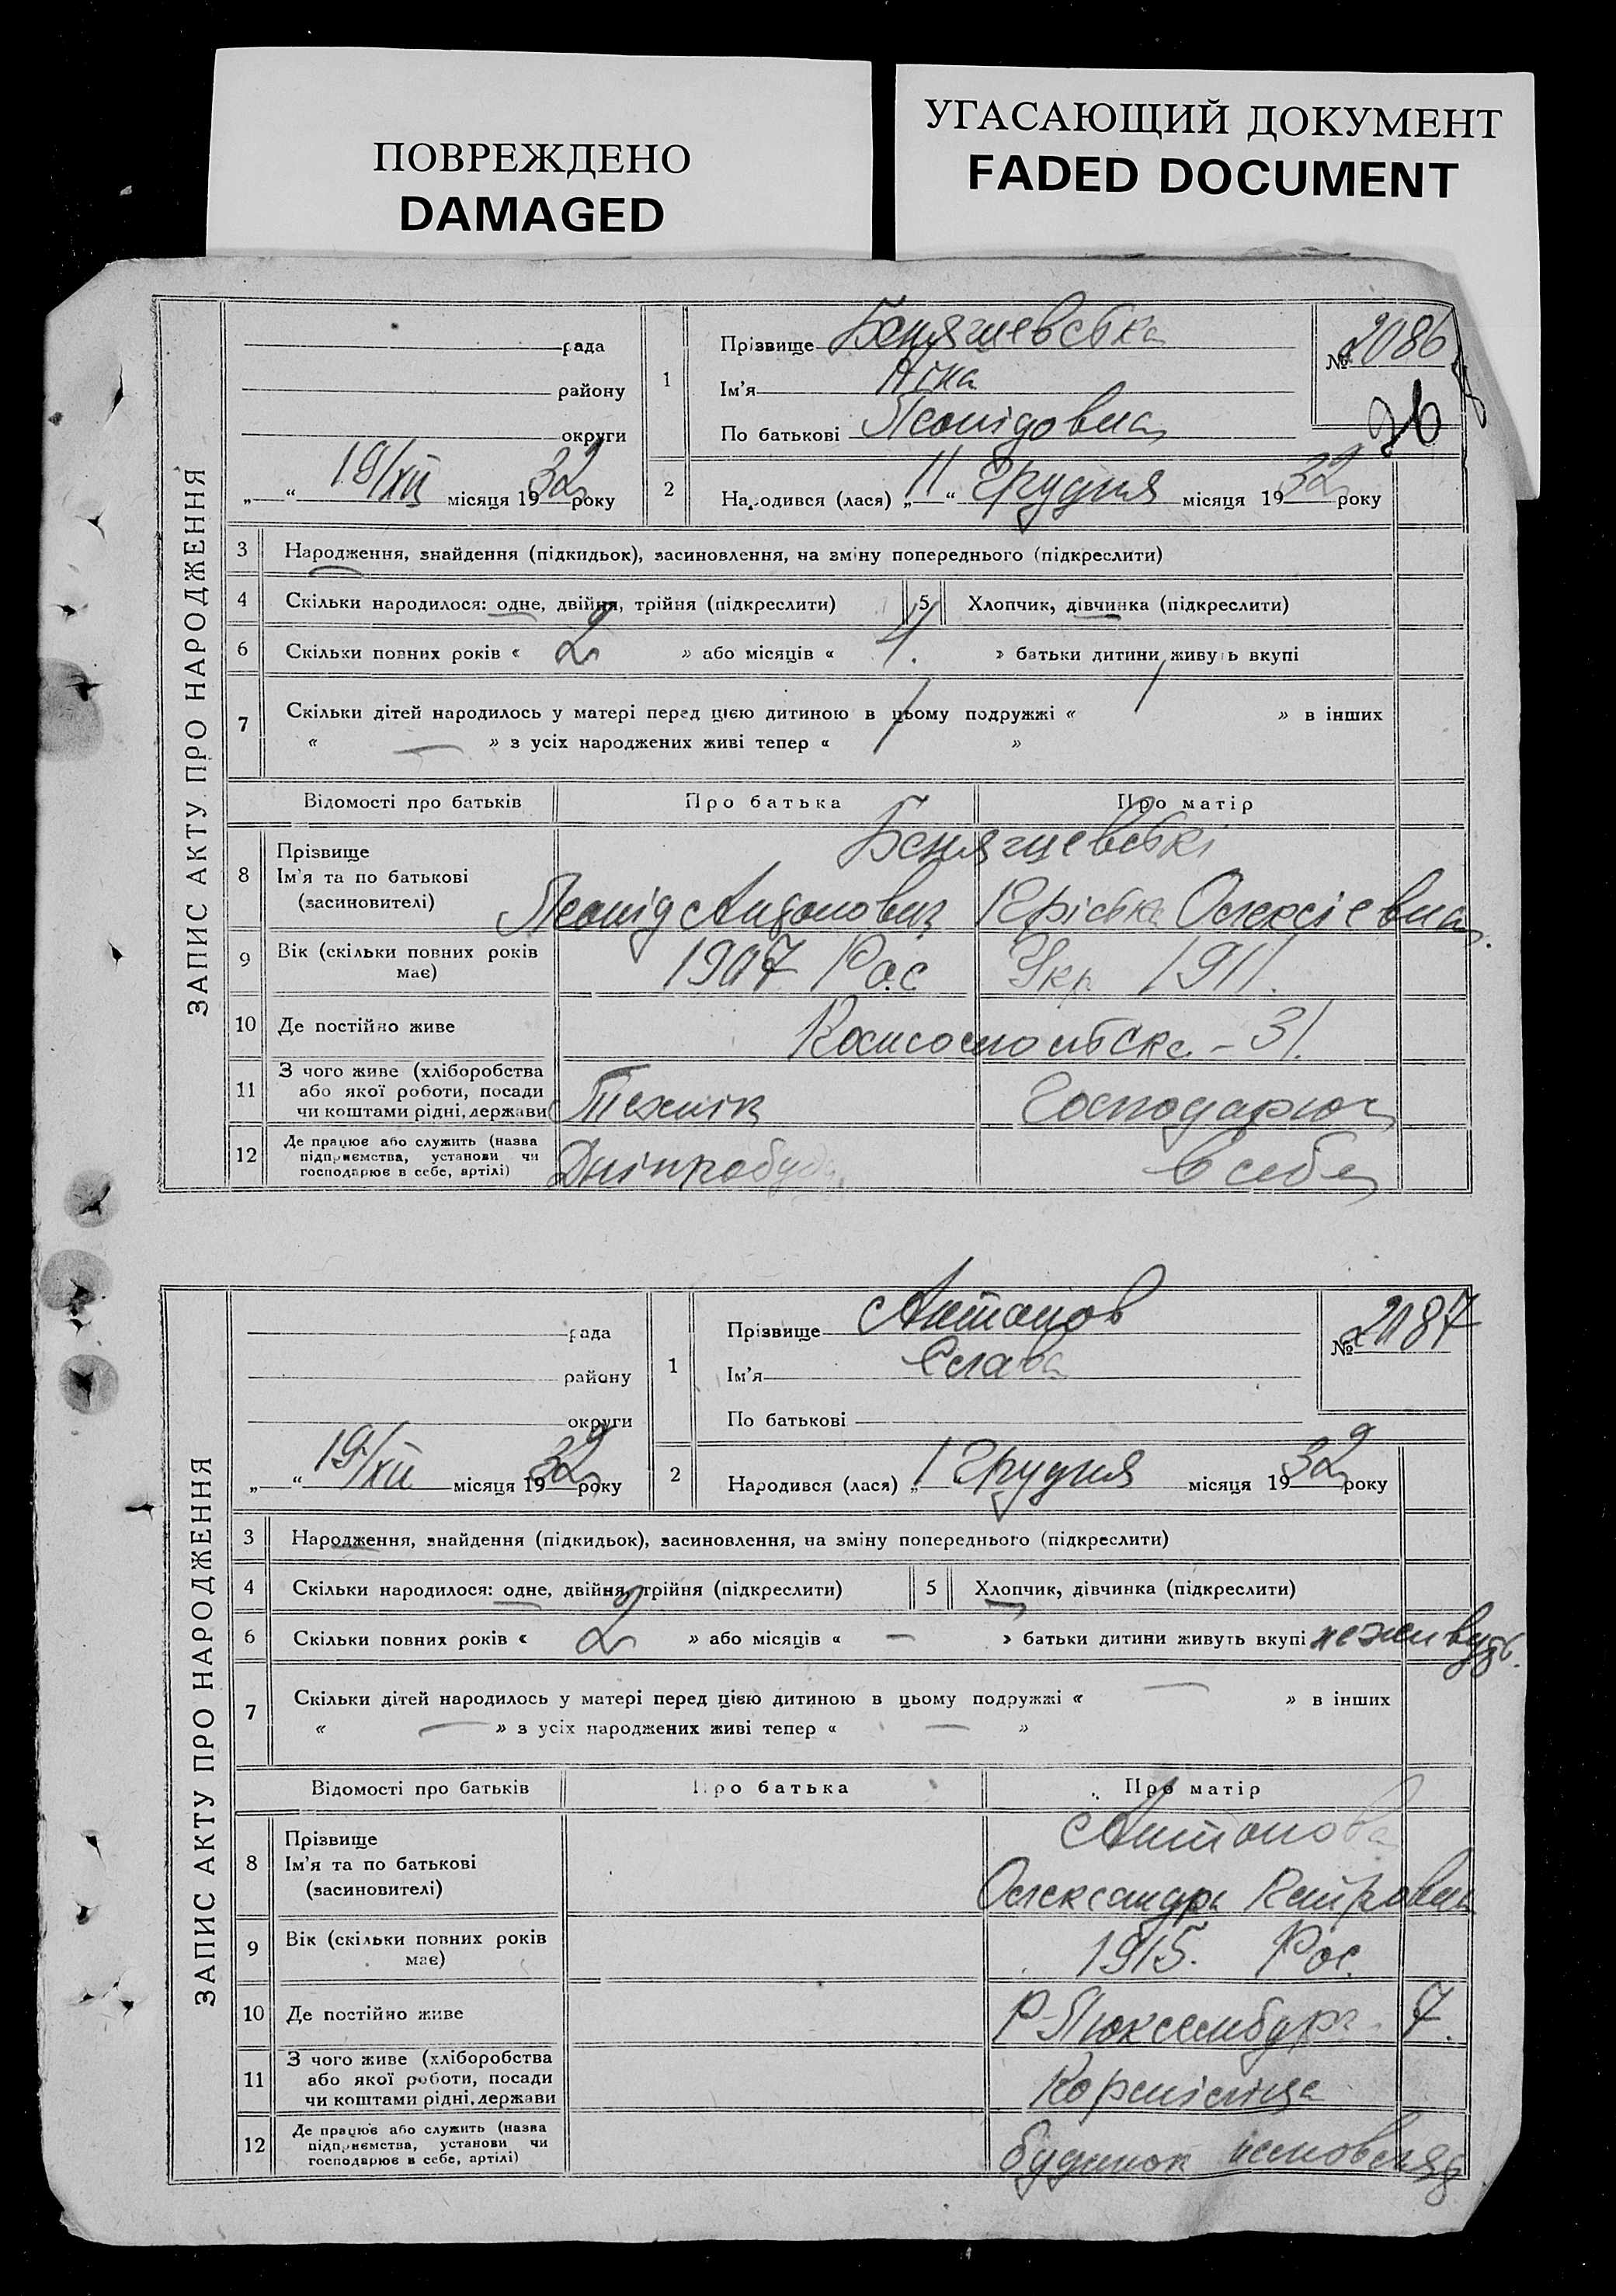 ПОВРЕЖДЕНО
DAMAGED
УГАСАЮЩИЙ ДОКУМЕНТ
FADED DOCUMENT
ЗАПИС АКТУ ПРО НАРОДЖЕННЯ
рада
району
округи
„ “ 19/XII місяця 1932 року
1
Прізвище
Ім'я
По батькові Леонідовна
№ 2086
26
2
Народився (лася) „11“ Грудня місяця 1932 року
3 Народження, знайдення (підкидьок), засиновлення, на зміну попереднього (підкреслити)
4 Скільки народилося: одне, двійня, трійня (підкреслити) 5 Хлопчик, дівчинка (підкреслити)
6 Скільки повних років « 2 » або місяців « » батьки дитини живуть вкупі
7 Скільки дітей народилось у матері перед цією дитиною в цьому подружжі « » в інших
« — » з усіх народжених живі тепер « »
Відомості про батьків Про батька Про матір
8 Прізвище
Ім'я та по батькові Леонід Антонович Олексіевна
(засиновителі)
9 Вік (скільки повних років має) 1907 Рос Укр 1911.
10 Де постійно живе - 31.
11 З чого живе (хліборобства або якої роботи, посади чи коштами рідні, держави Технік Господарює
12 Де працює або служить (назва підприємства, установи чи господарює в себе, артілі) Дніпробуд в себе
ЗАПИС АКТУ ПРО НАРОДЖЕННЯ
рада
району
округи
„ “ 19/XII місяця 1932 року
1
Прізвище Антонов
Ім'я Слава
По батькові
№ 2187
2
Народився (лася) „ 1 Грудня місяця 1932 року
3 Народження, знайдення (підкидьок), засиновлення, на зміну попереднього (підкреслити)
4 Скільки народилося: одне, двійня, трійня (підкреслити) 5 Хлопчик, дівчинка (підкреслити)
6 Скільки повних років « 2 » або місяців « — » батьки дитини живуть вкупі не живуть.
7 Скільки дітей народилось у матері перед цією дитиною в цьому подружжі « — » в інших
« — » з усіх народжених живі тепер « — »
Відомості про батьків Про батька Про матір
8 Прізвище Антонова
Ім'я та по батькові Олександра
(засиновителі)
9 Вік (скільки повних років має) 1915. Рос.
10 Де постійно живе Р-Люксембург 7.
11 З чого живе (хліборобства або якої роботи, посади чи коштами рідні, держави Корміліца
12 Де працює або служить (назва підприємства, установи чи господарює в себе, артілі) будинок немовлят